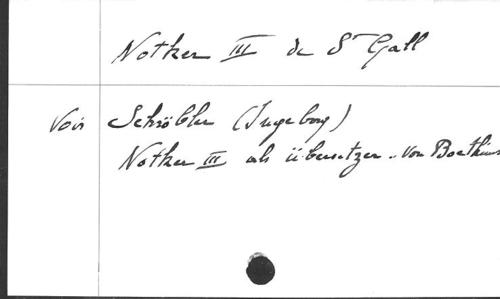 Notker III de St Gall
Voir Schröbler (Ingeborg)
Notker III als übersetzer .. von Boethius